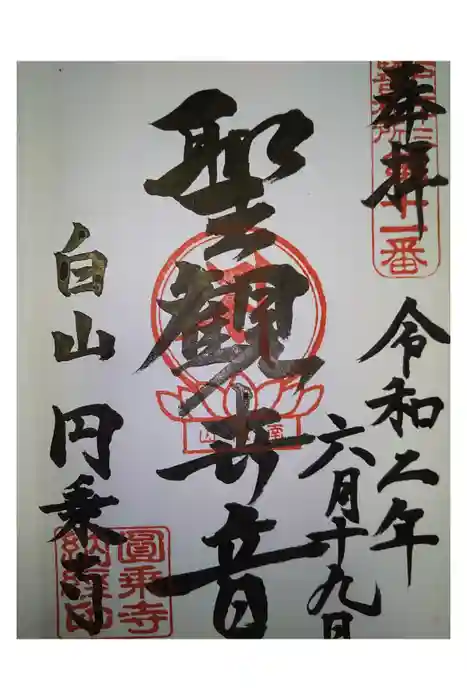 奉拝
第十一番
令和二年
六月十九日
聖観世音
白山 円乗寺
圓乗寺
納経印